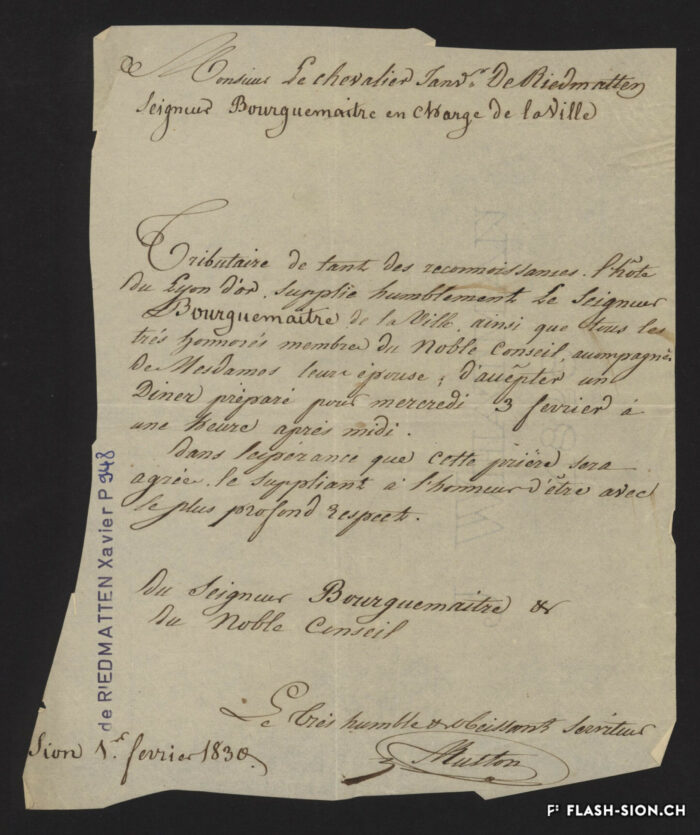 Monsieur Le chevalier Janv.r De Riedmatten
Seigneur Bourguemaitre en charge de la Ville
Tributaire de tant des reconnoissances, l'hôte
du Lyon d'or, supplie humblement Le Seigneur
Bourguemaitre de la Ville, ainsi que tous les
trés honnorés membre du Noble Conseil, accompagnés
De Mesdames leur épouse, d'accépter un
Diner préparé pour mercredi 3 fevrier à
une heure aprés midi.
Dans l'espérance que cette prière sera
agrée, le suppliant à l'honneur d'être avec
le plus profond respect.
Du Seigneur Bourguemaitre &
Du Noble Conseil
Le trés humble & obeissant Serviteur
Sion 1.r fevrier 1830.
de RIEDMATTEN Xavier P 948
FLASH-SION.CH